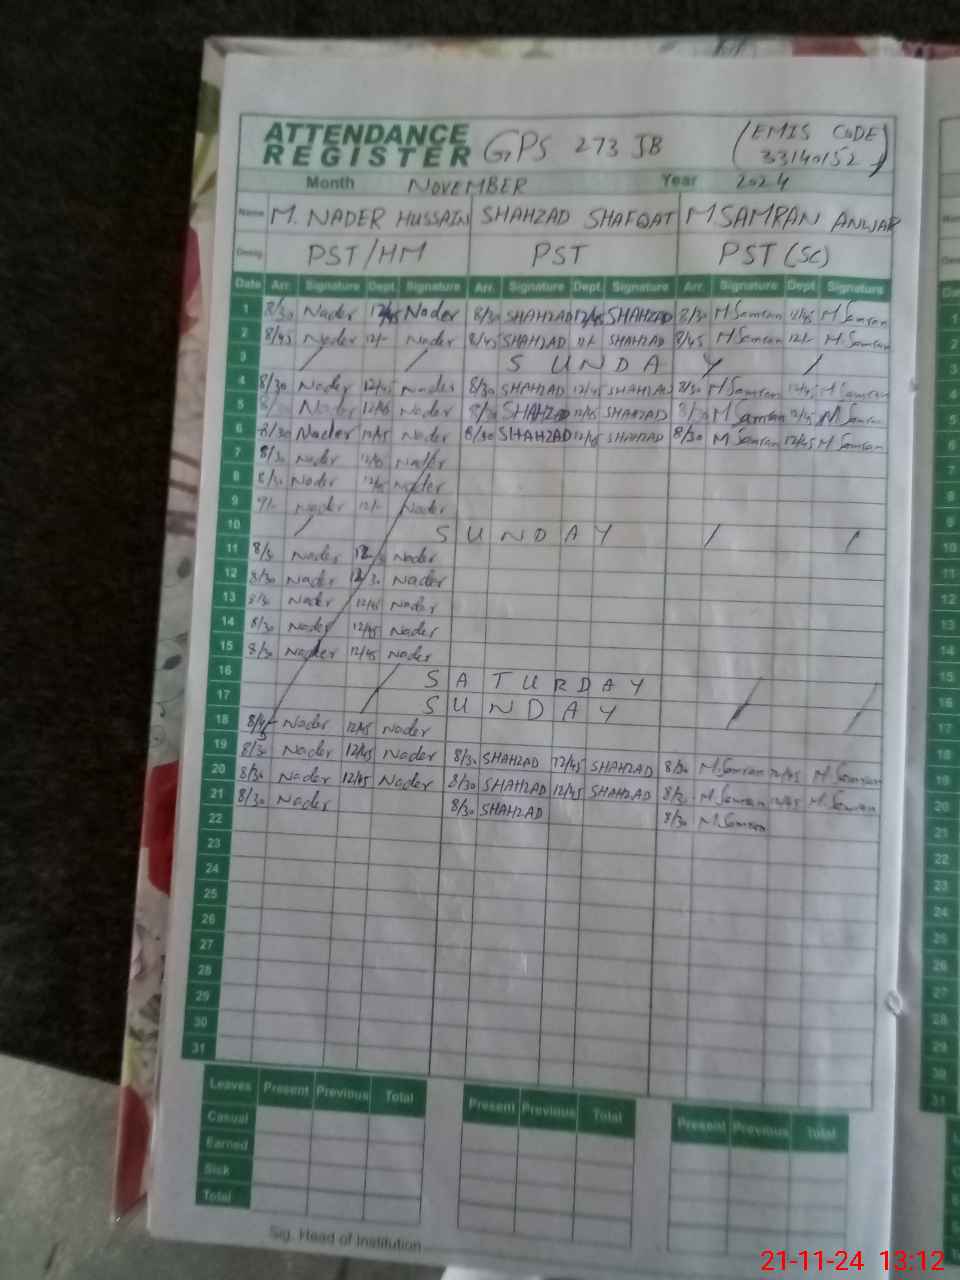 ATTENDANCE REGISTER GPS 273 JB (EMIS CODE) 33140152
Month NOVEMBER Year 2024
Name M. NADER HUSSAIN SHAHZAD SHAFQAT M.SAMRAN ANWAR
Desig. PST/HM PST PST (SC)
Date Arr. Signature Dept. Signature Arr. Signature Dept. Signature Arr. Signature Dept. Signature
1 8/30 Nader 12/45 Nader 8/30 SHAHZAD 12/45 SHAHZAD 8/30 M Samran 12/45 M Samran
2 8/45 Nader 12/- Nader 8/45 SHAHZAD 12/- SHAHZAD 8/45 M Samran 12/- M. Samran
3 SUNDAY
4 8/30 Nader 12/45 Nader 8/30 SHAHZAD 12/45 SHAHZAD 8/30 M Samran 12/45 M Samran
5 8/30 Nader 12/45 Nader 8/30 SHAHZAD 12/45 SHAHZAD 8/30 M Samran 12/45 M Samran
6 8/30 Nader 12/45 Nader 8/30 SHAHZAD 12/45 SHAHZAD 8/30 M Samran 12/45 M Samran
7 8/30 Nader 12/45 Nader
8 8/30 Nader 12/45 Nader
9 9/- Nader 12/- Nader
10 SUNDAY
11 8/30 Nader 12/30 Nader
12 8/30 Nader 12/30 Nader
13 8/30 Nader 12/45 Nader
14 8/30 Nader 12/45 Nader
15 8/30 Nader 12/45 Nader
16 SATURDAY
17 SUNDAY
18 8/45 Nader 12/45 Nader
19 8/30 Nader 12/45 Nader 8/30 SHAHZAD 12/45 SHAHZAD 8/30 M.Samran 12/45 M.Samran
20 8/30 Nader 12/45 Nader 8/30 SHAHZAD 12/45 SHAHZAD 8/30 M.Samran 12/45 M.Samran
21 8/30 Nader 8/30 SHAHZAD 8/30 M.Samran
22
23
24
25
26
27
28
29
30
31
Leaves Present Previous Total Present Previous Total Present Previous Total
Casual
Earned
Sick
Total
Sig. Head of Institution
21-11-24 13:12